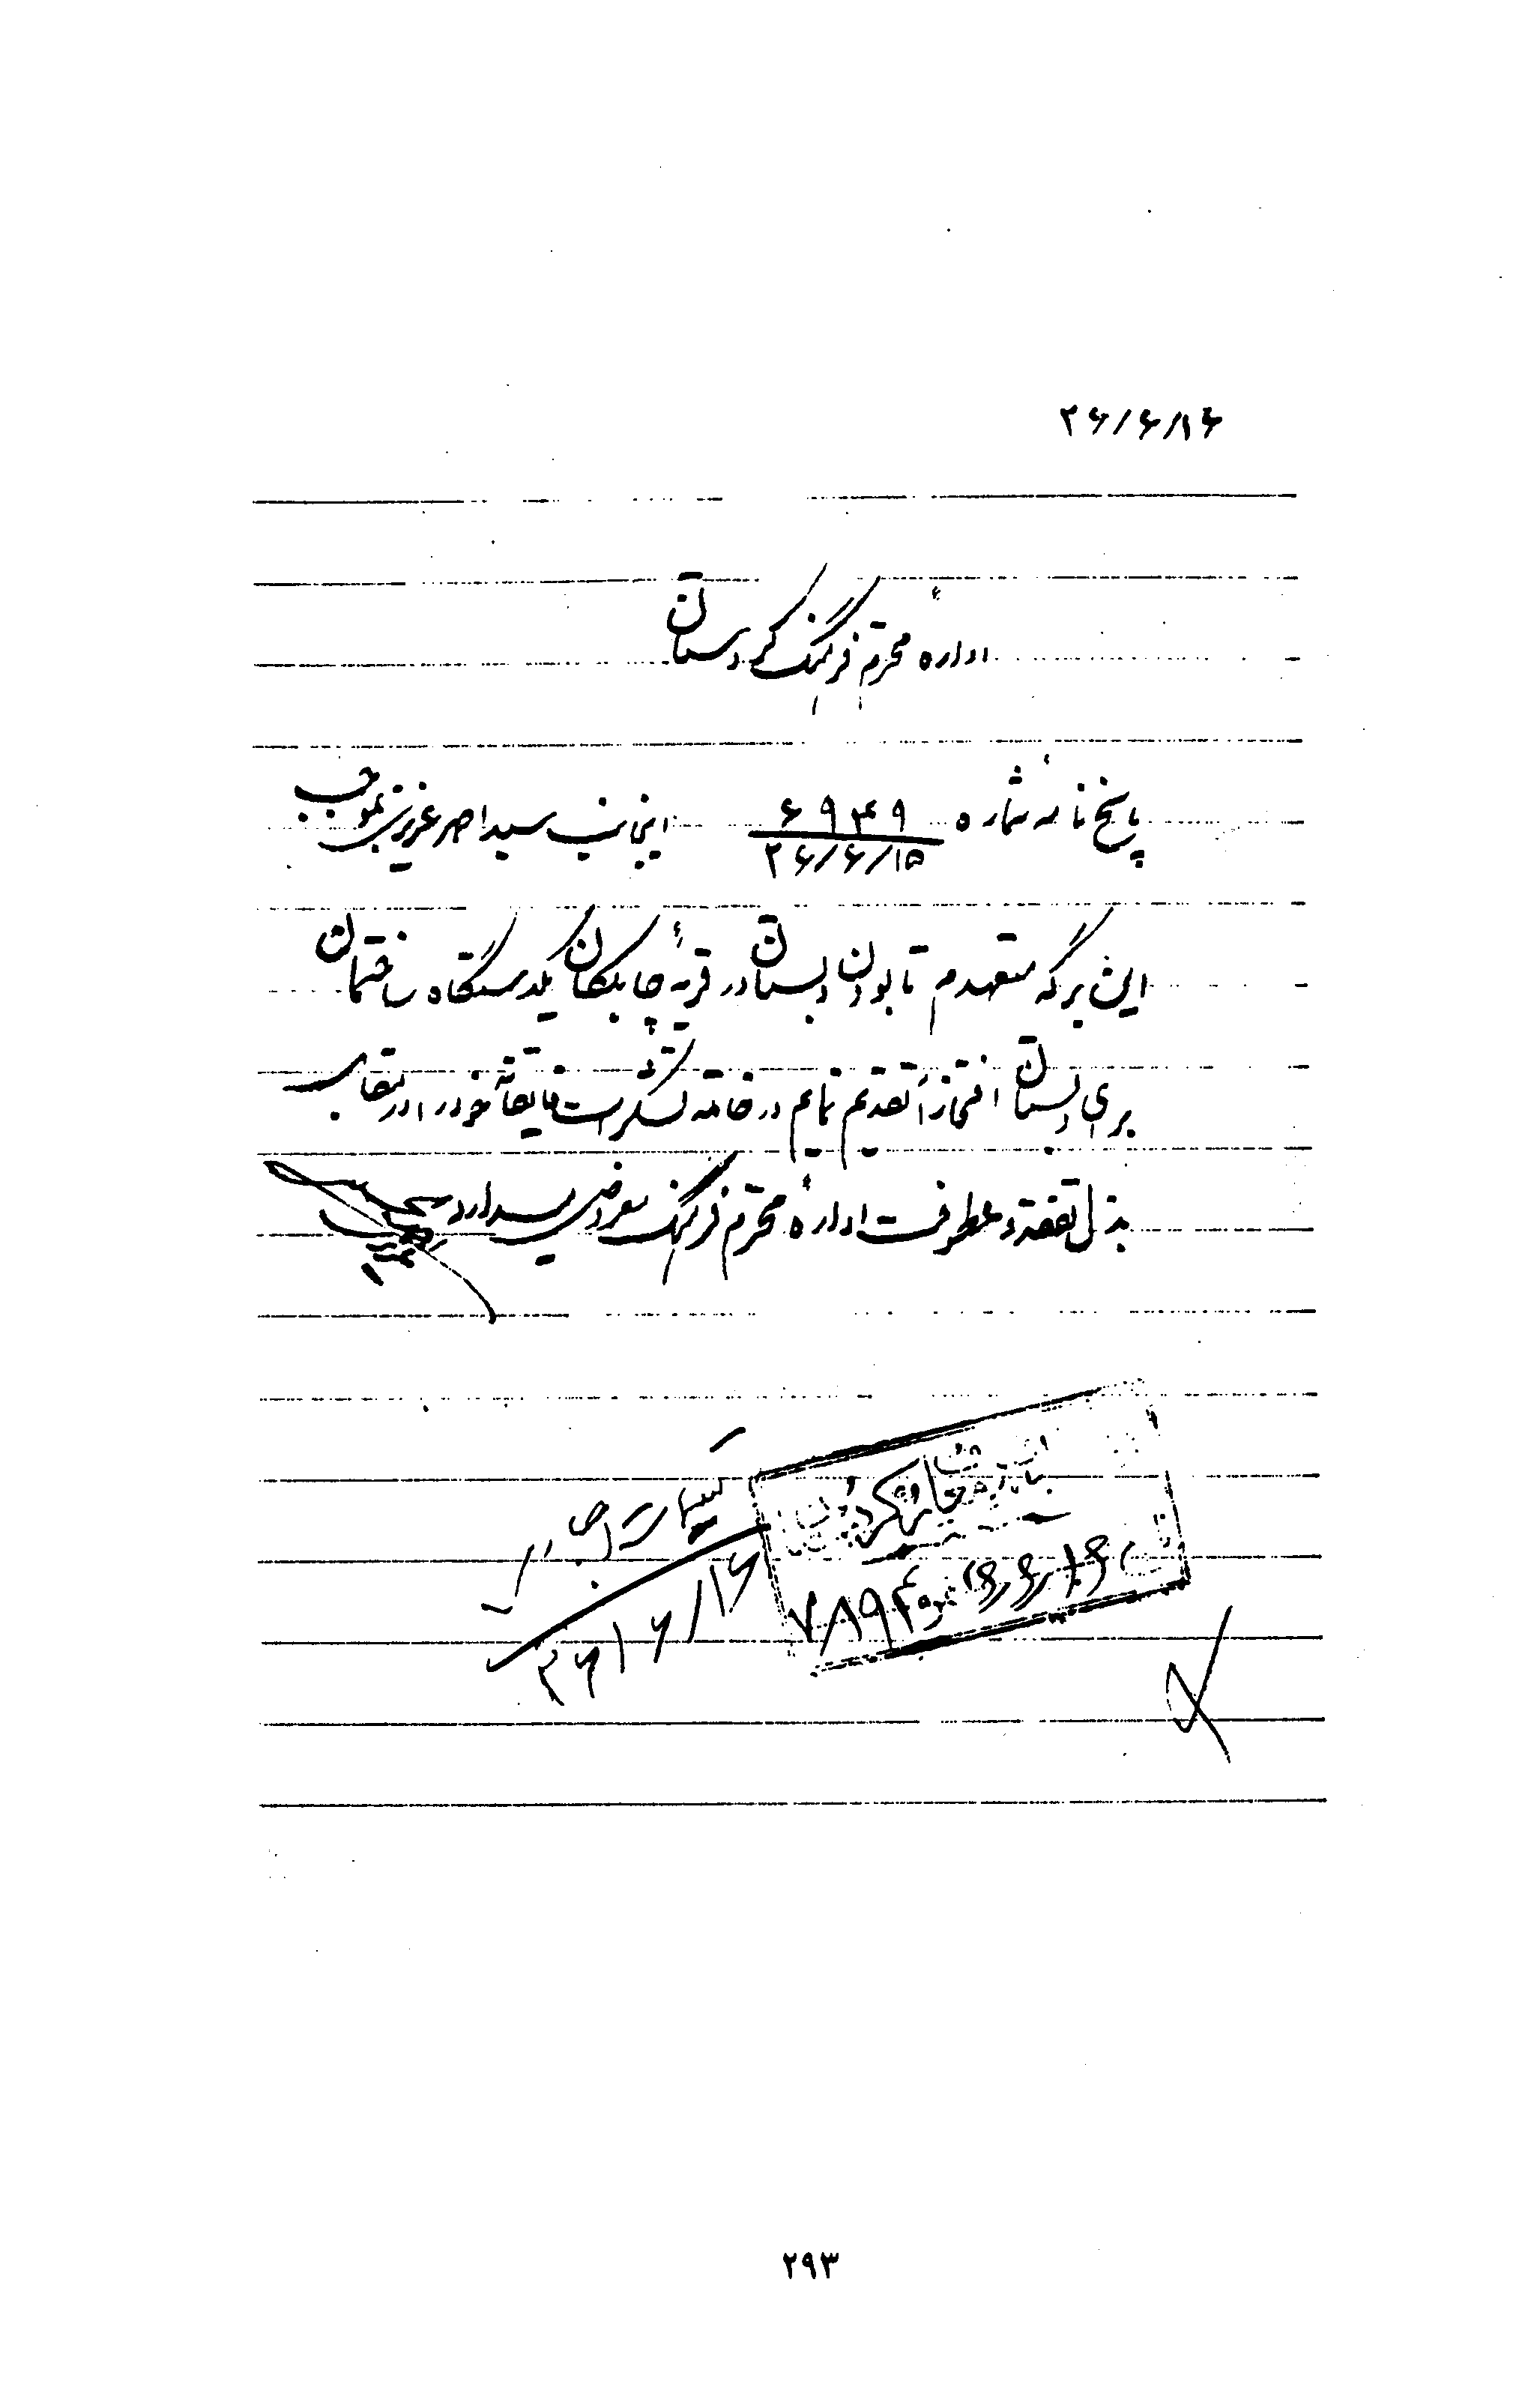 ۲۶/۶/۱۶
ادارهٔ محترم فرهنگ کردستان
پاسخ نامهٔ شماره ۶۹۴۹ اینجانب سید احمد عزیزی بموجب
۲۶/۶/۱۵
این برگه متعهدم تا بودن دبستان در قریهٔ چابکان یکدستگاه ساختمان
برای دبستان افتخاراً تقدیم نمایم در خاتمه تشکرات فایقهٔ خود را در مقابل
بذل تفقد و عطوفت ادارهٔ محترم فرهنگ معروض میدارد
۲۶/۶/۱۶
۷۸۹۴
۲۹۳